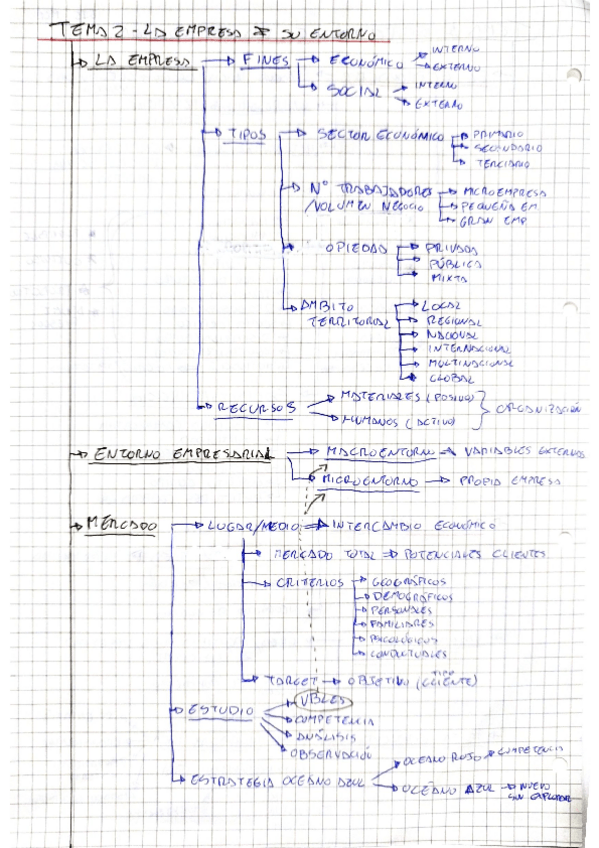 TEMA 2 - LA EMPRESA Y SU ENTORNO
LA EMPRESA
FINES
ECONÓMICO
INTERNO
EXTERNO
SOCIAL
INTERNO
EXTERNO
TIPOS
SECTOR ECONÓMICO
PRIMARIO
SECUNDARIO
TERCIARIO
Nº TRABAJADORES
/VOLUMEN NEGOCIO
MICROEMPRESA
PEQUEÑA EM
GRAN EMP
OPIEDAD
PRIVADA
PÚBLICA
MIXTA
ÁMBITO
TERRITORIAL
LOCAL
REGIONAL
NACIONAL
INTERNACIONAL
MULTINACIONAL
GLOBAL
RECURSOS
MATERIALES (PASIVO)
HUMANOS (ACTIVO)
ORGANIZACIÓN
ENTORNO EMPRESARIAL
MACROENTORNO
VARIABLES EXTERNAS
MICROENTORNO
PROPIA EMPRESA
MERCADO
LUGAR/MEDIO
INTERCAMBIO ECONÓMICO
MERCADO TOTAL
POTENCIALES CLIENTES
CRITERIOS
GEOGRÁFICOS
DEMOGRÁFICOS
PERSONALES
FAMILIARES
PSICOLÓGICOS
CONDUCTUALES
TARGET
OBJETIVO (CLIENTE)
TIPO
ESTUDIO
VBLES
COMPETENCIA
ANÁLISIS
OBSERVACIÓN
ESTRATEGIA OCEANO AZUL
OCEANO ROJO
COMPETENCIA
OCÉANO AZUL
NUEVO
SIN EXPLORAR